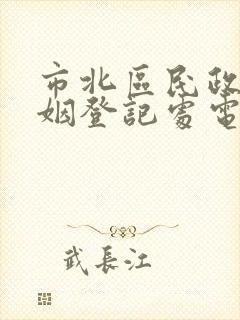 市北區民政
姻登記處電
武長江